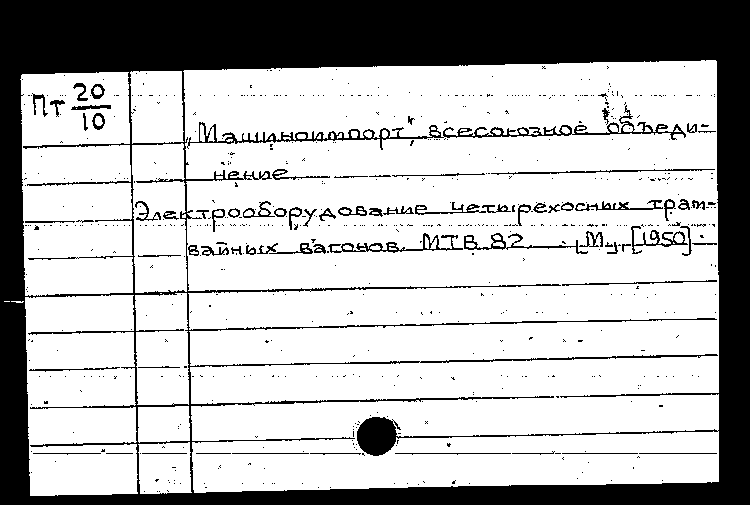 Пт 20/10
„Машиноимпорт", всесоюзное объеди-
нение.
Электрооборудование четырехосных трам-
вайных вагонов МТВ 82. [М., [1950].